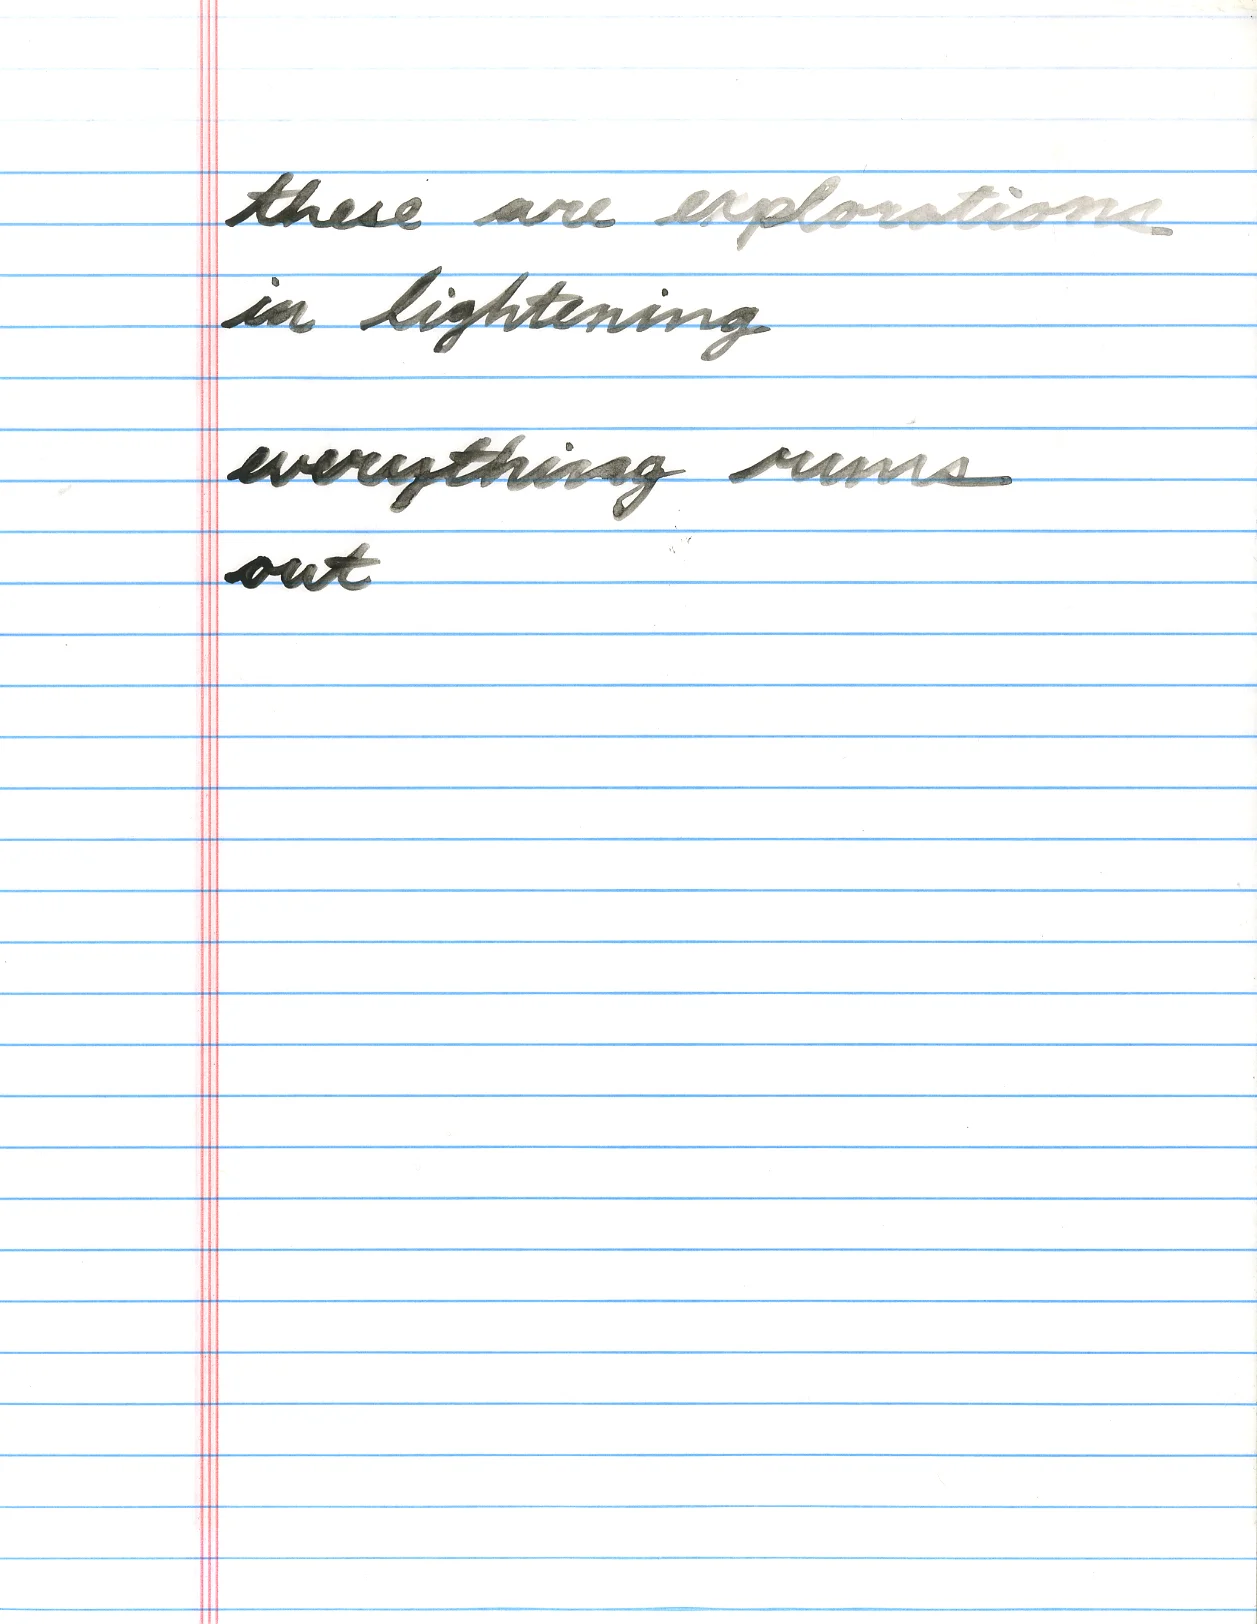 these are explorations
in lightening
everything runs
out